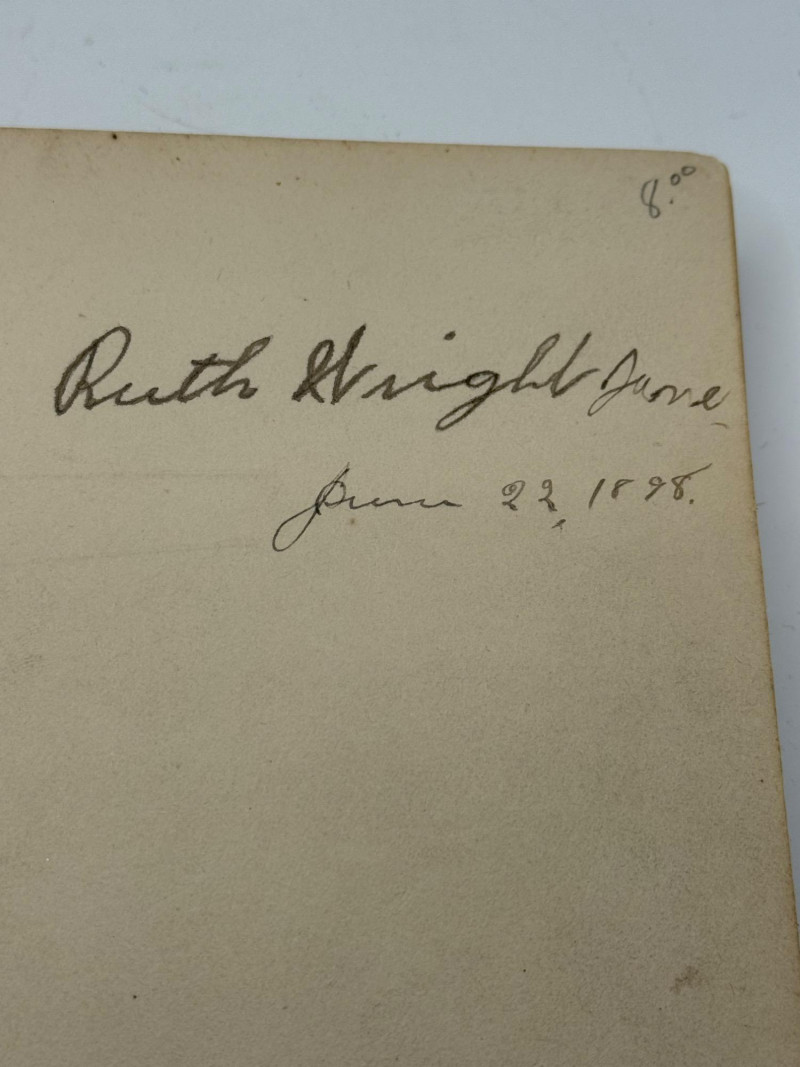 8.00
Ruth Wright Jane
June 22, 1898.